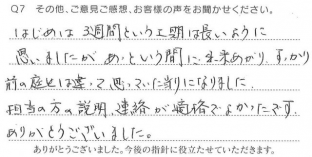 Q7 その他、ご意見ご感想、お客様の声をお聞かせください。
はじめは 3週間という工期は長いように
思いましたが あっという間に 出来あがり、すっかり
前の庭とは違って 思っていた通りになりました。
担当の方の説明、連絡が 適格でよかったです。
ありがとうございました。
ありがとうございました。今後の指針に役立たせていただきます。